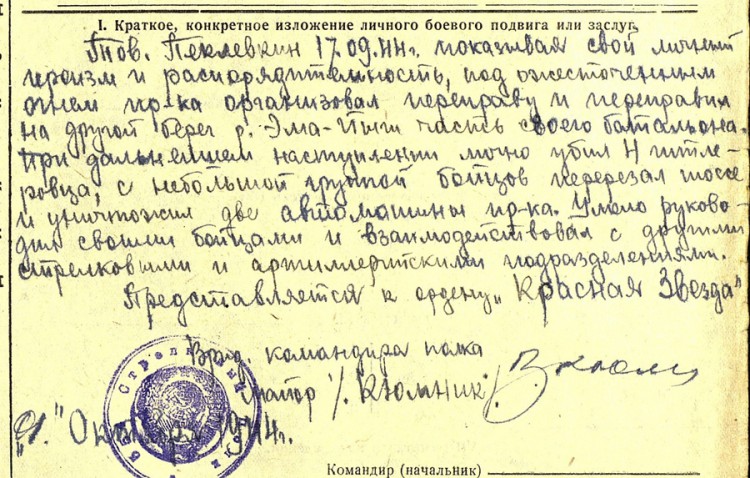 I. Краткое, конкретное изложение личного боевого подвига или заслуг.
Тов. Пеклевкин 17.09.44г. показывая свой личный
героизм и распорядительность, под ожесточенным
огнем пр-ка организовал переправу и переправил
на другой берег р. Эма-Йыги часть своего батальона.
При дальнейшем наступлении лично убил 4 гитле-
ровца, с небольшой группой бойцов перерезал шоссе
и уничтожил две автомашины пр-ка. Умело руково-
дил своими бойцами и взаимодействовал с другими
стрелковыми и артиллерийскими подразделениями.
Представляется к ордену „Красная Звезда"
Врид. командира полка
Майор /. Кюмник/
" Октября 1944г.
Командир (начальник)